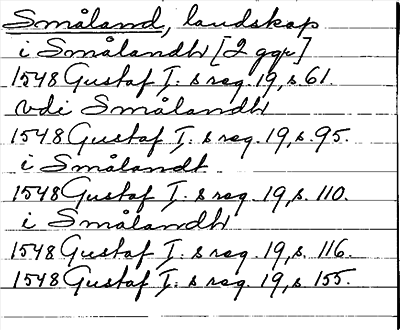 Småland, landskap
i Smålandh [2 ggr]
1548 Gustaf I:s reg. 19, s. 61.
vdi Smålandh
1548 Gustaf I:s reg. 19, s. 95.
i Smålandt
1548 Gustaf I:s reg. 19, s. 110.
i Smålandh
1548 Gustaf I:s reg. 19, s. 116.
1548 Gustaf I:s reg. 19, s. 155.